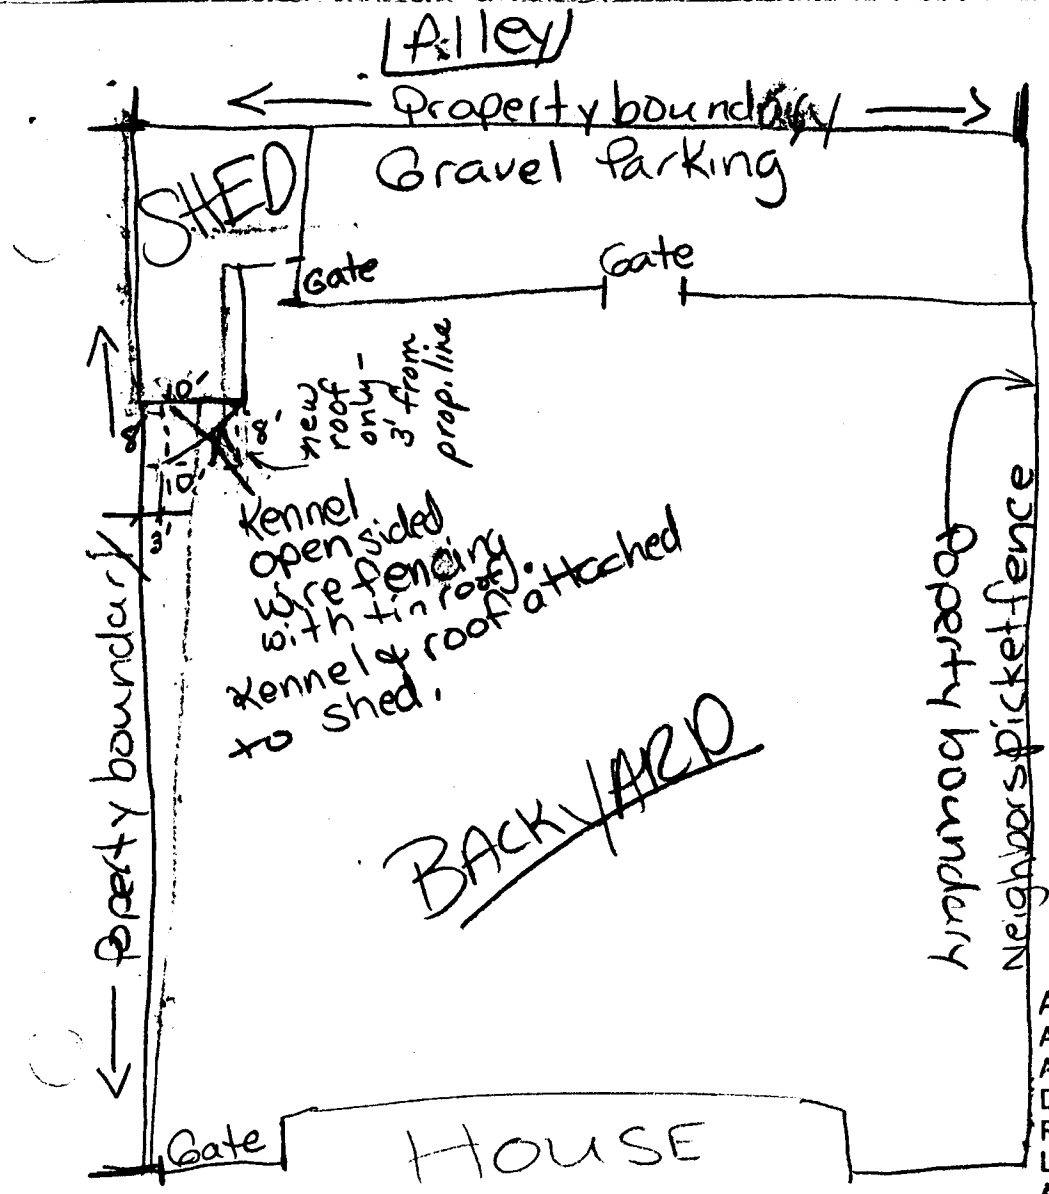 Alley
Property boundary
Gravel Parking
SHED
Gate
Gate
new
roof
only-
3' from
prop. line
10'
8'
8'
10'
3'
Kennel
open sided
wire fencing
with tin roof.
Kennel & roof attached
to shed.
Property boundary
BACKYARD
Property boundary
Neighbors picket fence
Gate
HOUSE